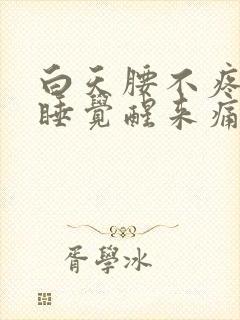 白天腰不疼
睡覺醒来痛
胥學冰